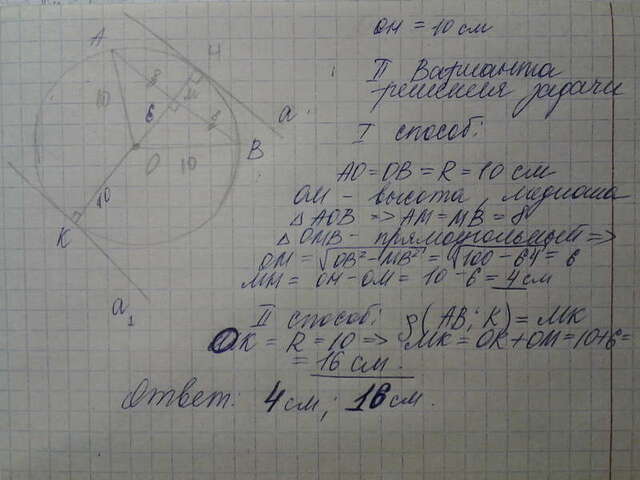 OH = 10 см
II Варианта
решения задачи
I способ:
AO = OB = R = 10 см
OM - высота, медиана
△ AOB => AM = MB = 8
△ OMB - прямоугольный =>
OM = √OB² - MB² = √100 - 64 = 6
MH = OH - OM = 10 - 6 = 4 см
II способ: ρ(AB; K) = MK
OK = R = 10 => MK = OK + OM = 10 + 6 =
= 16 см.
Ответ: 4 см; 16 см.
A
H
8
M
10
6
8
a
O
10
B
10
K
a₁